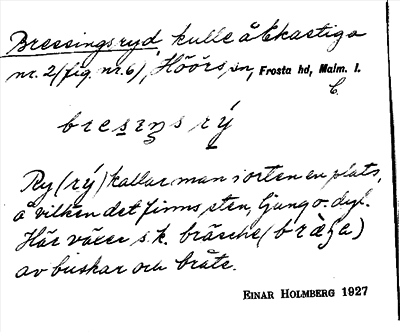 Bressingsryd, kulle å Ekastiga
nr. 2 (fig. nr. 6), Höörs sn, Frosta hd, Malm. l.
C.
bresiŋs rý
Ry (rý) kallar man i orten en plats,
å vilken det finns sten, ljung o. dyl.
Här växer s.k. bräsche
av buskar och bråte.
EINAR HOLMBERG 1927